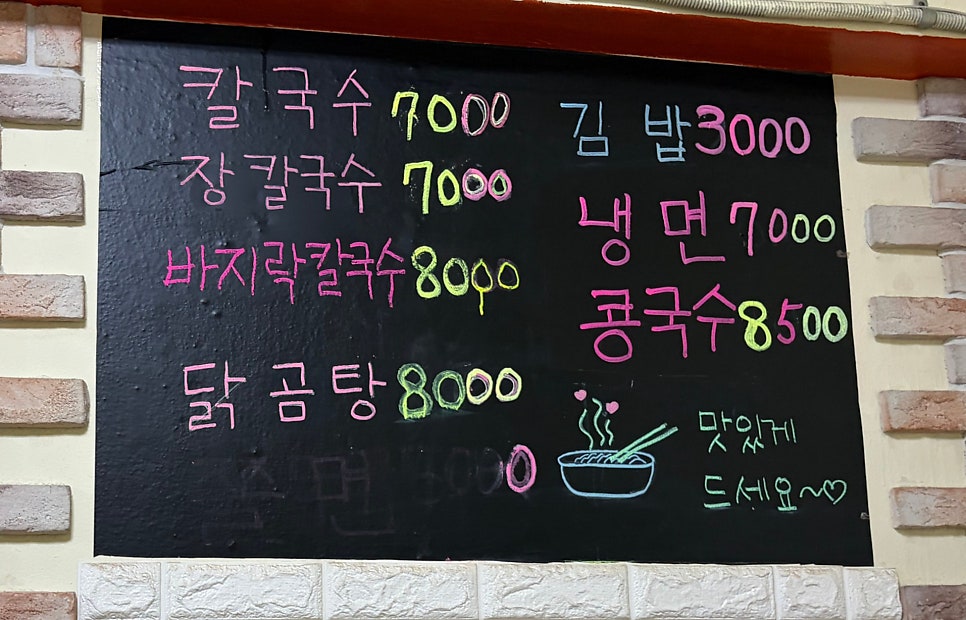 칼국수 7000
장칼국수 7000
바지락칼국수 8000
닭곰탕 8000
김밥 3000
냉면 7000
콩국수 8500
맛있게
드세요~♡